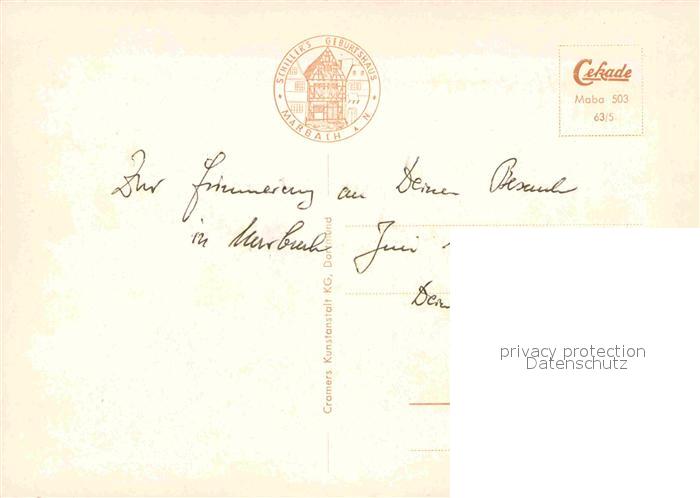 SCHILLERS GEBURTSHAUS
MARBACH A. N.
Cekade
Maba 503
63/5
Zur Erinnerung an Deinen Besuch
in Marbach Juni
Dein
Cramers Kunstanstalt KG, Dortmund
privacy protection
Datenschutz